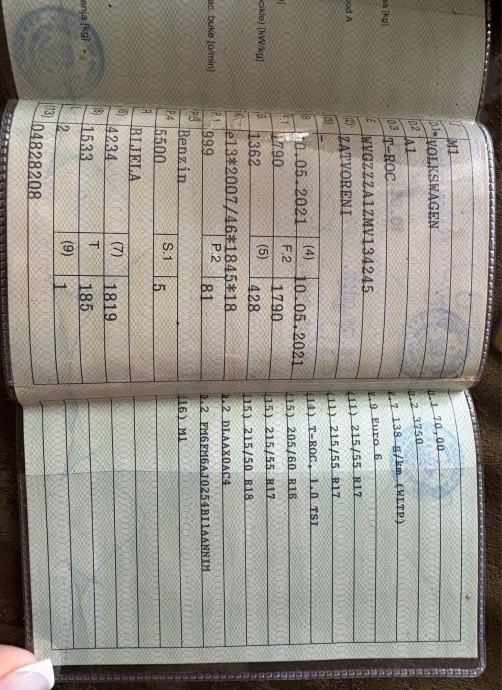 M1
VOLKSWAGEN
D.2 A1
D.3 T-ROC
E WVGZZZA1ZMV134245
(2) ZATVORENI
(3)
B 10.05.2021 (4) 10.05.2021
F.1 1790 F.2 1790
G 1362 (5) 428
K e13*2007/46*1845*18
P.1 999 P.2 81
P.3 Benzin
P.4 5500 S.1 5
R BIJELA
(6) 4234 (7) 1819
(8) 1533 T 185
L 2 (9) 1
(13) 04828208
U.1 70.00
U.2 3750
V.7 138 g/km (WLTP)
V.9 Euro 6
(11) 215/55 R17
(11) 215/55 R17
(14) T-ROC, 1.0 TSI
(15) 205/60 R16
(15) 215/55 R17
(15) 215/50 R18
D.2 DLAAX0AC4
(16) M1
sa [kg]
zod A
ocikle) [kW/kg]
ac. buke [o/min]
enja [kg]